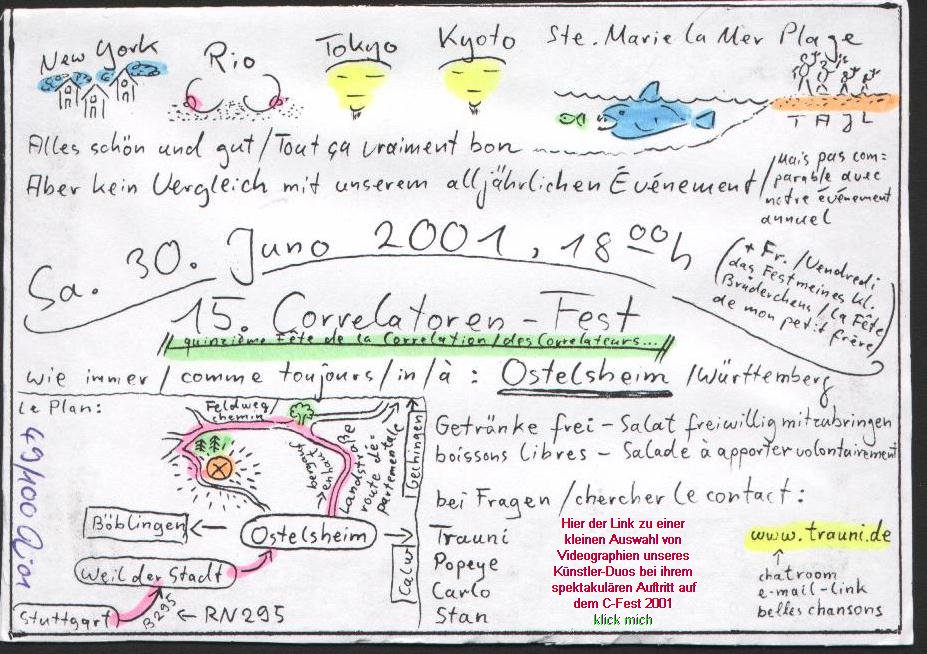 New York Rio Tokyo Kyoto Ste. Marie la Mer Plage
TAJL
Alles schön und gut / Tout ça vraiment bon
Aber kein Vergleich mit unserem alljährlichen Événement /
Mais pas com=
parable avec
notre événement
annuel
Sa. 30. Juno 2001, 18 00 h
(+ Fr. / Vendredi
das Fest meines kl.
Brüderchens / la Fête
de mon petit frère)
15. Correlatoren-Fest
// quinzième Fête de la Correlation / des Correlateurs... //
wie immer / comme toujours / in / à : Ostelsheim / Württemberg
le Plan:
Feldweg /
chemin
bergauf
en haut
Landstraße
route dé-
partementale
Gechingen
Böblingen
Ostelsheim
Calw
Weil der Stadt
Stuttgart
B295
RN295
49/100
Getränke frei - Salat freiwillig mitzubringen
boissons libres - Salade à apporter volontairement
bei Fragen / chercher le contact:
Trauni
Popeye
Carlo
Stan
Hier der Link zu einer
kleinen Auswahl von
Videographien unseres
Künstler-Duos bei ihrem
spektakulären Auftritt auf
dem C-Fest 2001
klick mich
www.trauni.de
chatroom
e-mail-link
belles chansons